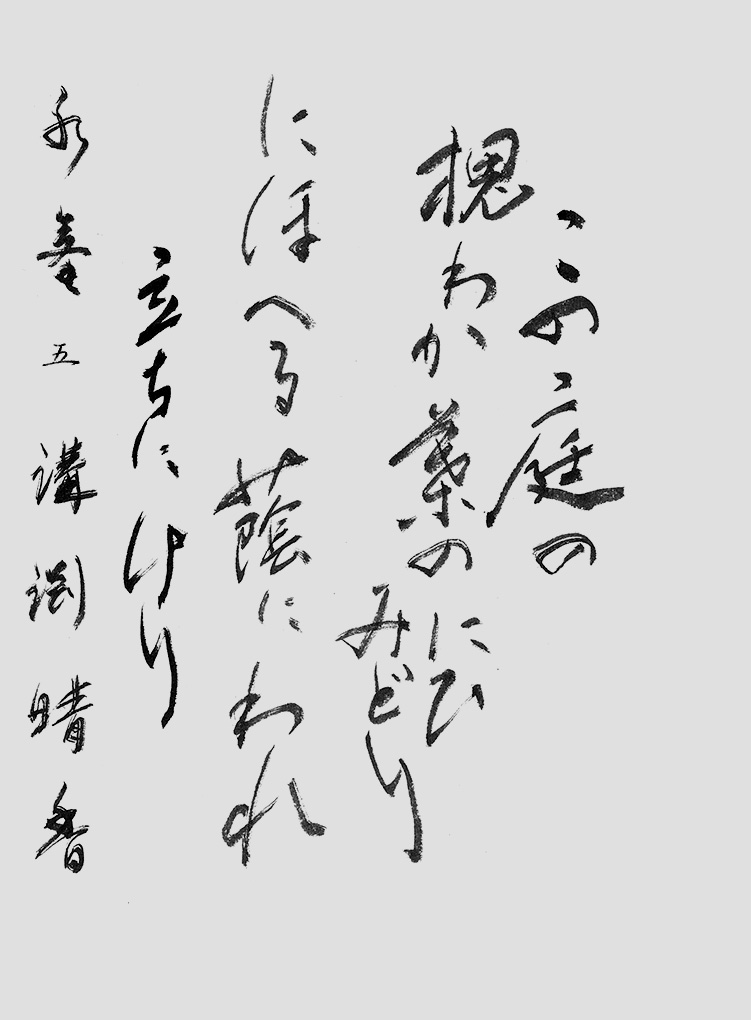 この庭の
槐わか葉のにひ
みどり
にほへる蔭にわれ
立ちにけり
五 溝渕晴香